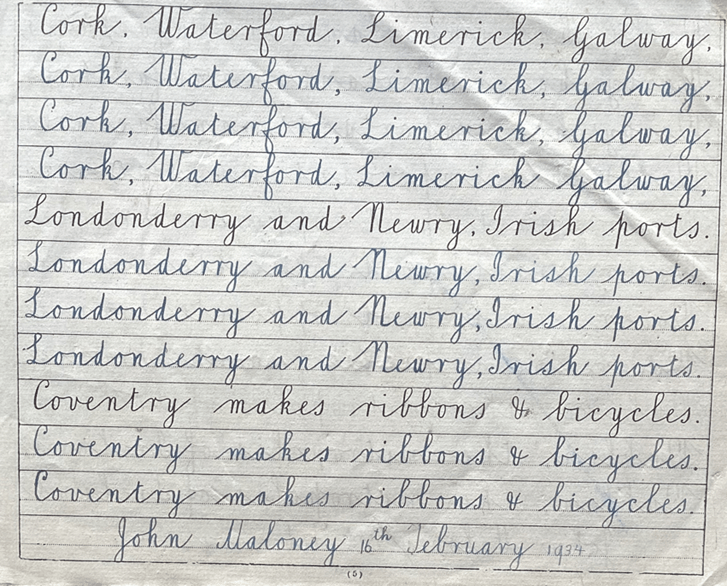 Cork, Waterford, Limerick, Galway,
Cork, Waterford, Limerick, Galway,
Cork, Waterford, Limerick, Galway,
Cork, Waterford, Limerick Galway,
Londonderry and Newry, Irish ports.
Londonderry and Newry, Irish ports.
Londonderry and Newry, Irish ports.
Londonderry and Newry, Irish ports.
Coventry makes ribbons & bicycles.
Coventry makes ribbons & bicycles.
Coventry makes ribbons & bicycles.
John Maloney 16th February 1934
(5)